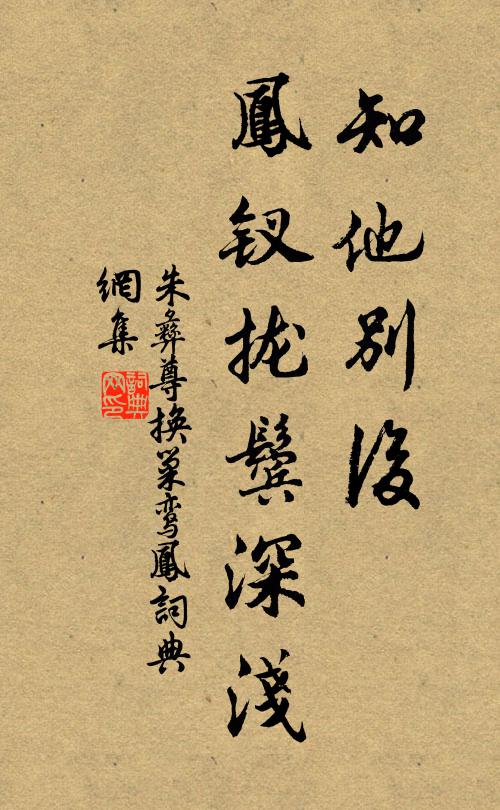 知他别後
鳳钗拢鬓深淺
朱彝尊換巢鸾鳳詞典
網集
詞典
网印